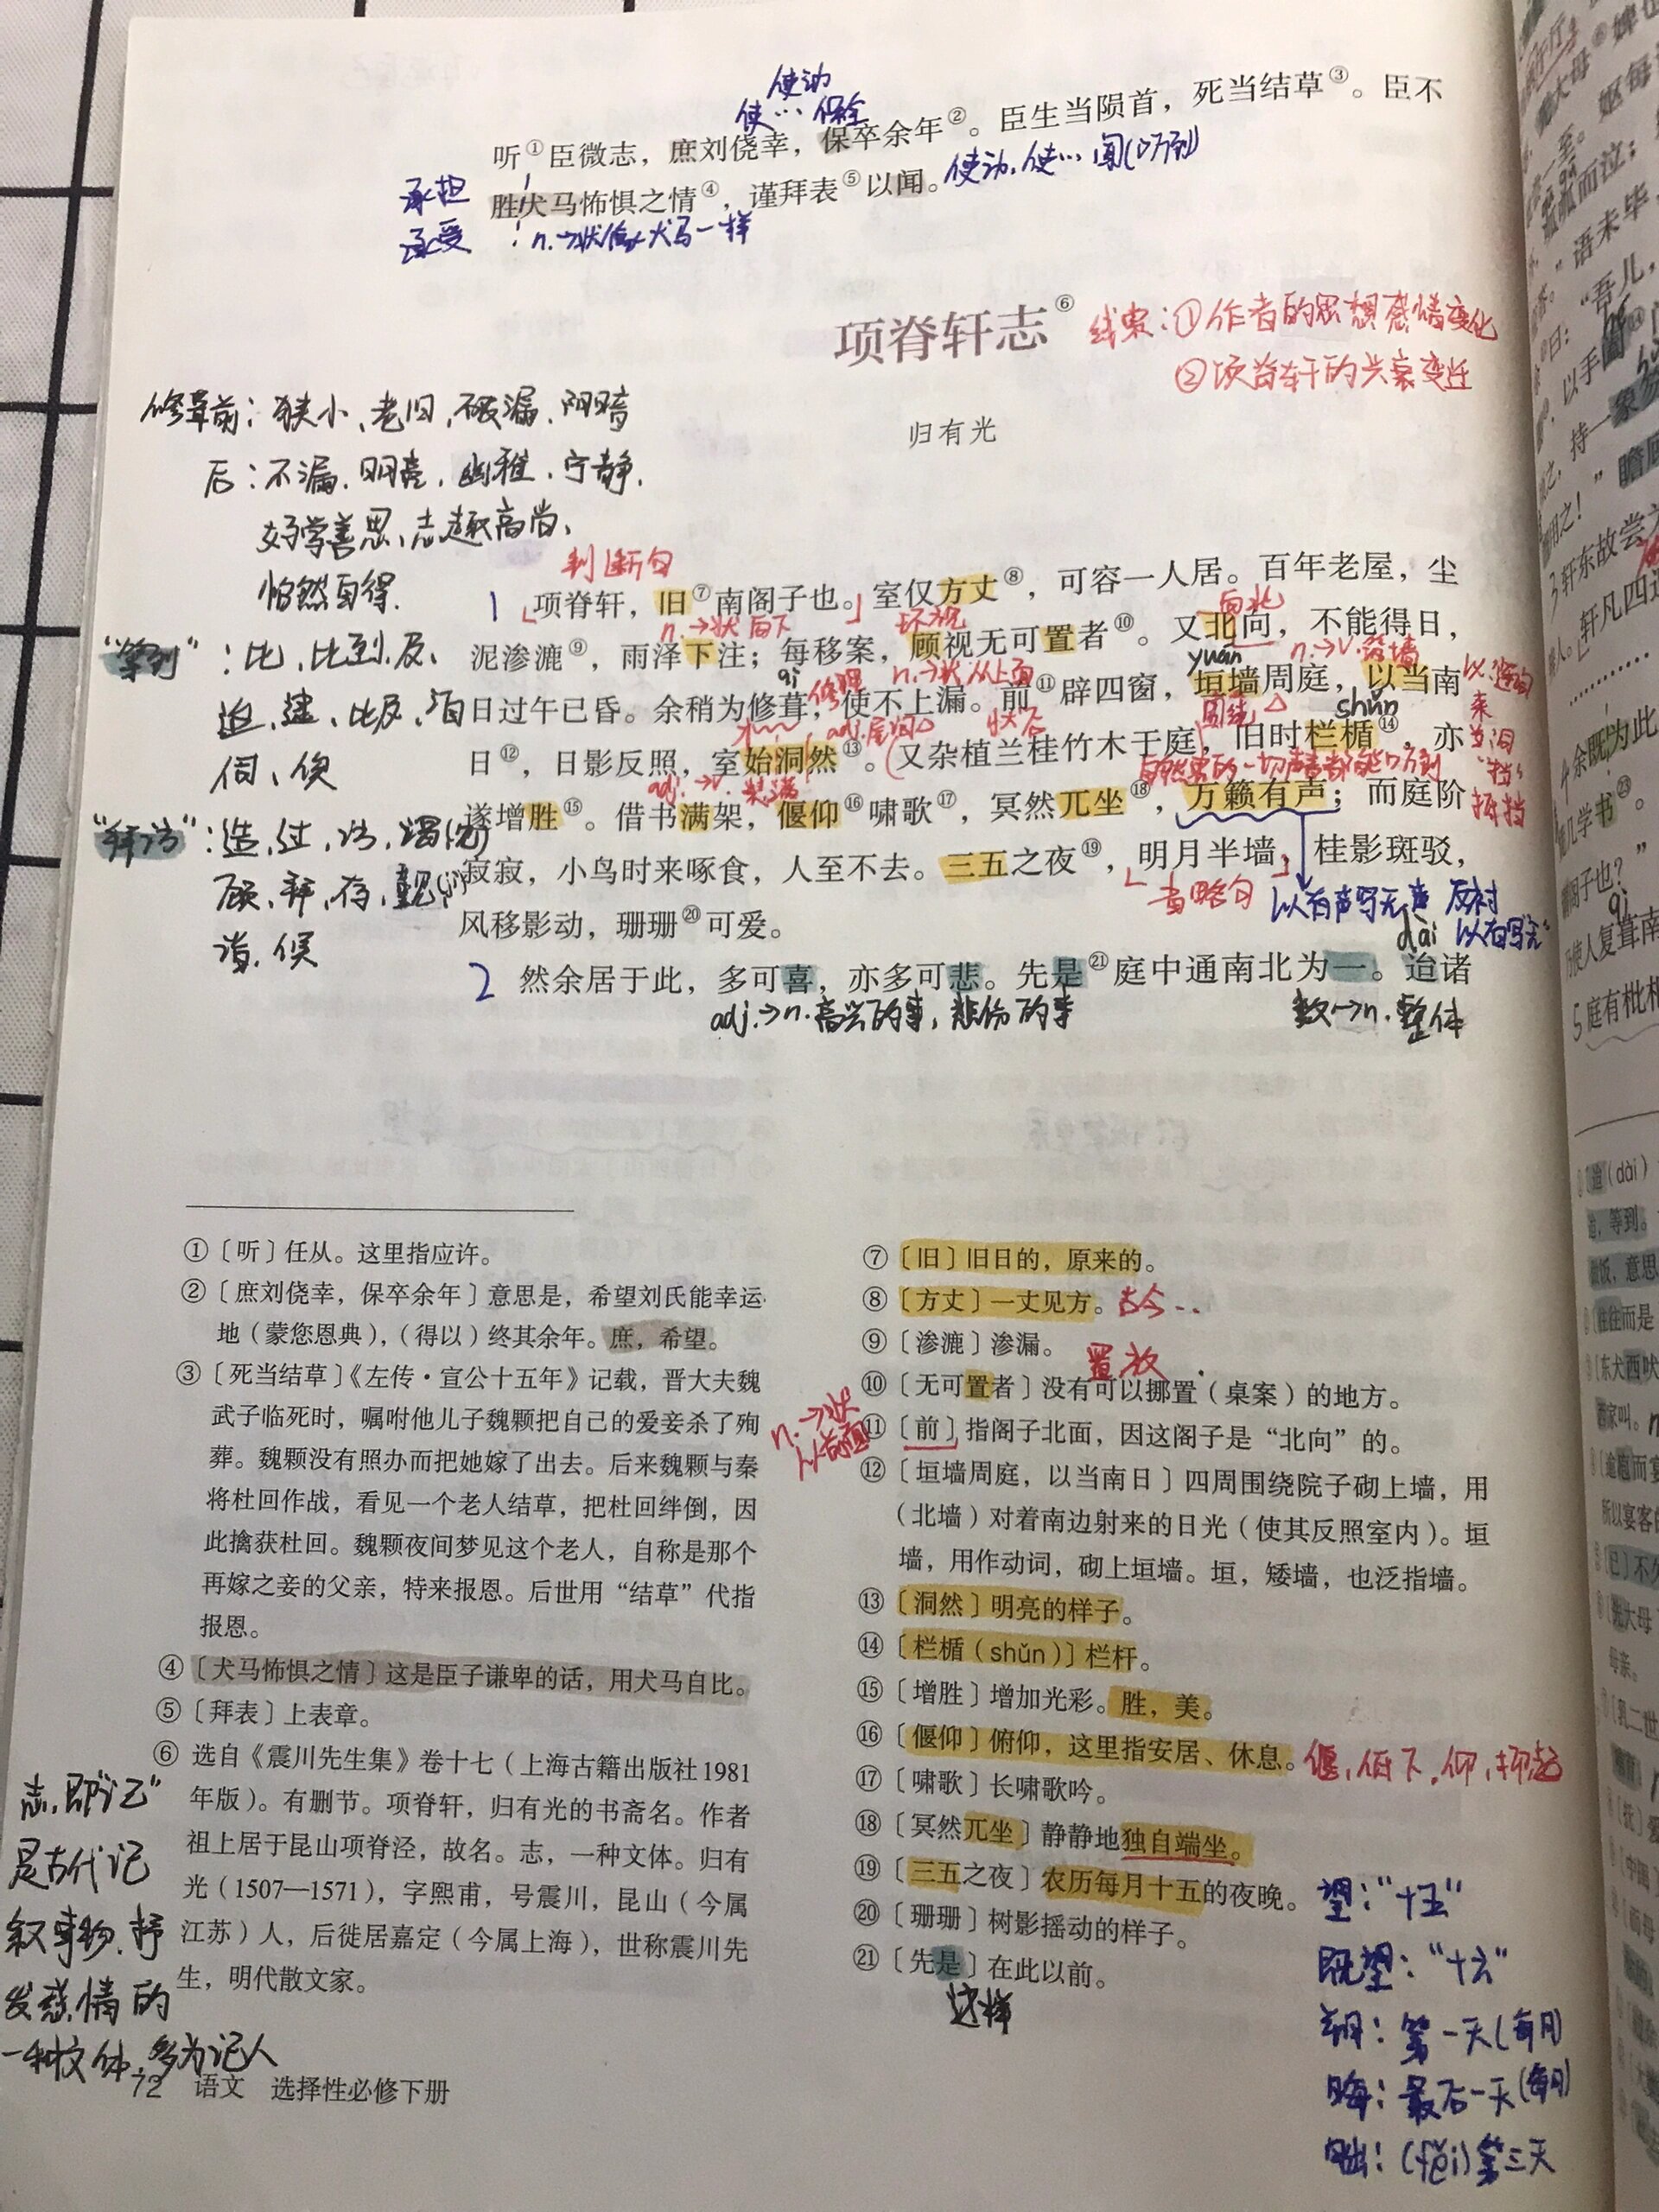 使动
使…保全
听①臣微志，庶刘侥幸，保卒余年②。臣生当陨首，死当结草③。臣不
承担
胜犬马怖惧之情④，谨拜表⑤以闻。使动，使…闻(听到)
承受
n.→状 像犬马一样
项脊轩志⑥
线索：①作者的思想感情变化
②项脊轩的兴衰变迁
归有光
修葺前：狭小、老旧、破漏、阴暗
后：不漏、明亮、幽雅、宁静、
好学善思、志趣高尚、
怡然自得.
判断句
1 项脊轩，旧⑦南阁子也。室仅方丈⑧，可容一人居。百年老屋，尘
n.→状 向下
环视
向北
泥渗漉⑨，雨泽下注；每移案，顾视无可置者⑩。又北向，不能得日，
qì
修理
n.→状 从上面
yuán
n.→v.筑墙
日过午已昏。余稍为修葺，使不上漏。前⑪辟四窗，垣墙周庭，以当南
adj.尾词
状后
周绕
shǔn
日⑫，日影反照，室始洞然⑬。又杂植兰桂竹木于庭，旧时栏楯⑭，亦
adj.→v. 装满
遂增胜⑮。借书满架，偃仰⑯啸歌⑰，冥然兀坐⑱，万籁有声；而庭阶
寂寂，小鸟时来啄食，人至不去。三五之夜⑲，明月半墙，桂影斑驳，
省略句
以有声写无声 反衬
以有写“无”
风移影动，珊珊⑳可爱。
dài
2 然余居于此，多可喜，亦多可悲。先是㉑庭中通南北为一。迨诸
adj.→n.高兴的事，悲伤的事
数→n.整体
“等到”：比、比到、及、
迨、逮、比及、
伺、俟
“拜访”：造、过、访、谒
顾、拜、存、觐
诣、候
①〔听〕任从。这里指应许。
②〔庶刘侥幸，保卒余年〕意思是，希望刘氏能幸运
地（蒙您恩典），（得以）终其余年。庶，希望。
③〔死当结草〕《左传·宣公十五年》记载，晋大夫魏
武子临死时，嘱咐他儿子魏颗把自己的爱妾杀了殉
葬。魏颗没有照办而把她嫁了出去。后来魏颗与秦
将杜回作战，看见一个老人结草，把杜回绊倒，因
此擒获杜回。魏颗夜间梦见这个老人，自称是那个
再嫁之妾的父亲，特来报恩。后世用“结草”代指
报恩。
④〔犬马怖惧之情〕这是臣子谦卑的话，用犬马自比。
⑤〔拜表〕上表章。
⑥ 选自《震川先生集》卷十七（上海古籍出版社1981
年版）。有删节。项脊轩，归有光的书斋名。作者
祖上居于昆山项脊泾，故名。志，一种文体。归有
光（1507—1571），字熙甫，号震川，昆山（今属
江苏）人，后徙居嘉定（今属上海），世称震川先
生，明代散文家。
志，即“记”
是古代记
叙事物、抒
发感情的
一种文体，多为记人
⑦〔旧〕旧日的，原来的。
⑧〔方丈〕一丈见方。古今…
⑨〔渗漉〕渗漏。
置放
⑩〔无可置者〕没有可以挪置（桌案）的地方。
n.→状
⑪〔前〕指阁子北面，因这阁子是“北向”的。
⑫〔垣墙周庭，以当南日〕四周围绕院子砌上墙，用
（北墙）对着南边射来的日光（使其反照室内）。垣
墙，用作动词，砌上垣墙。垣，矮墙，也泛指墙。
⑬〔洞然〕明亮的样子。
⑭〔栏楯（shǔn）〕栏杆。
⑮〔增胜〕增加光彩。胜，美。
⑯〔偃仰〕俯仰，这里指安居、休息。偃，低下。仰，抬起
⑰〔啸歌〕长啸歌吟。
⑱〔冥然兀坐〕静静地独自端坐。
⑲〔三五之夜〕农历每月十五的夜晚。
⑳〔珊珊〕树影摇动的样子。
㉑〔先是〕在此以前。
这样
望：“十五”
既望：“十六”
朔：第一天(每月)
晦：最后一天(每月)
朏：(fěi)第三天
72 语文 选择性必修下册